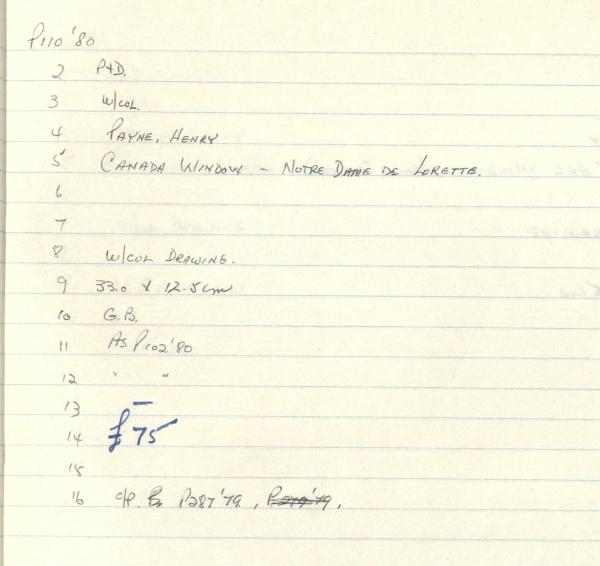 P110 '80
2 P+D.
3 W/COL.
4 PAYNE, HENRY
5 CANADA WINDOW - NOTRE DAME DE LORETTE.
6
7
8 W/COL DRAWING.
9 33.0 x 12.5cm
10 G.B.
11 As P102 '80
12 " "
13 —
14 £75
15
16 P287 '79,